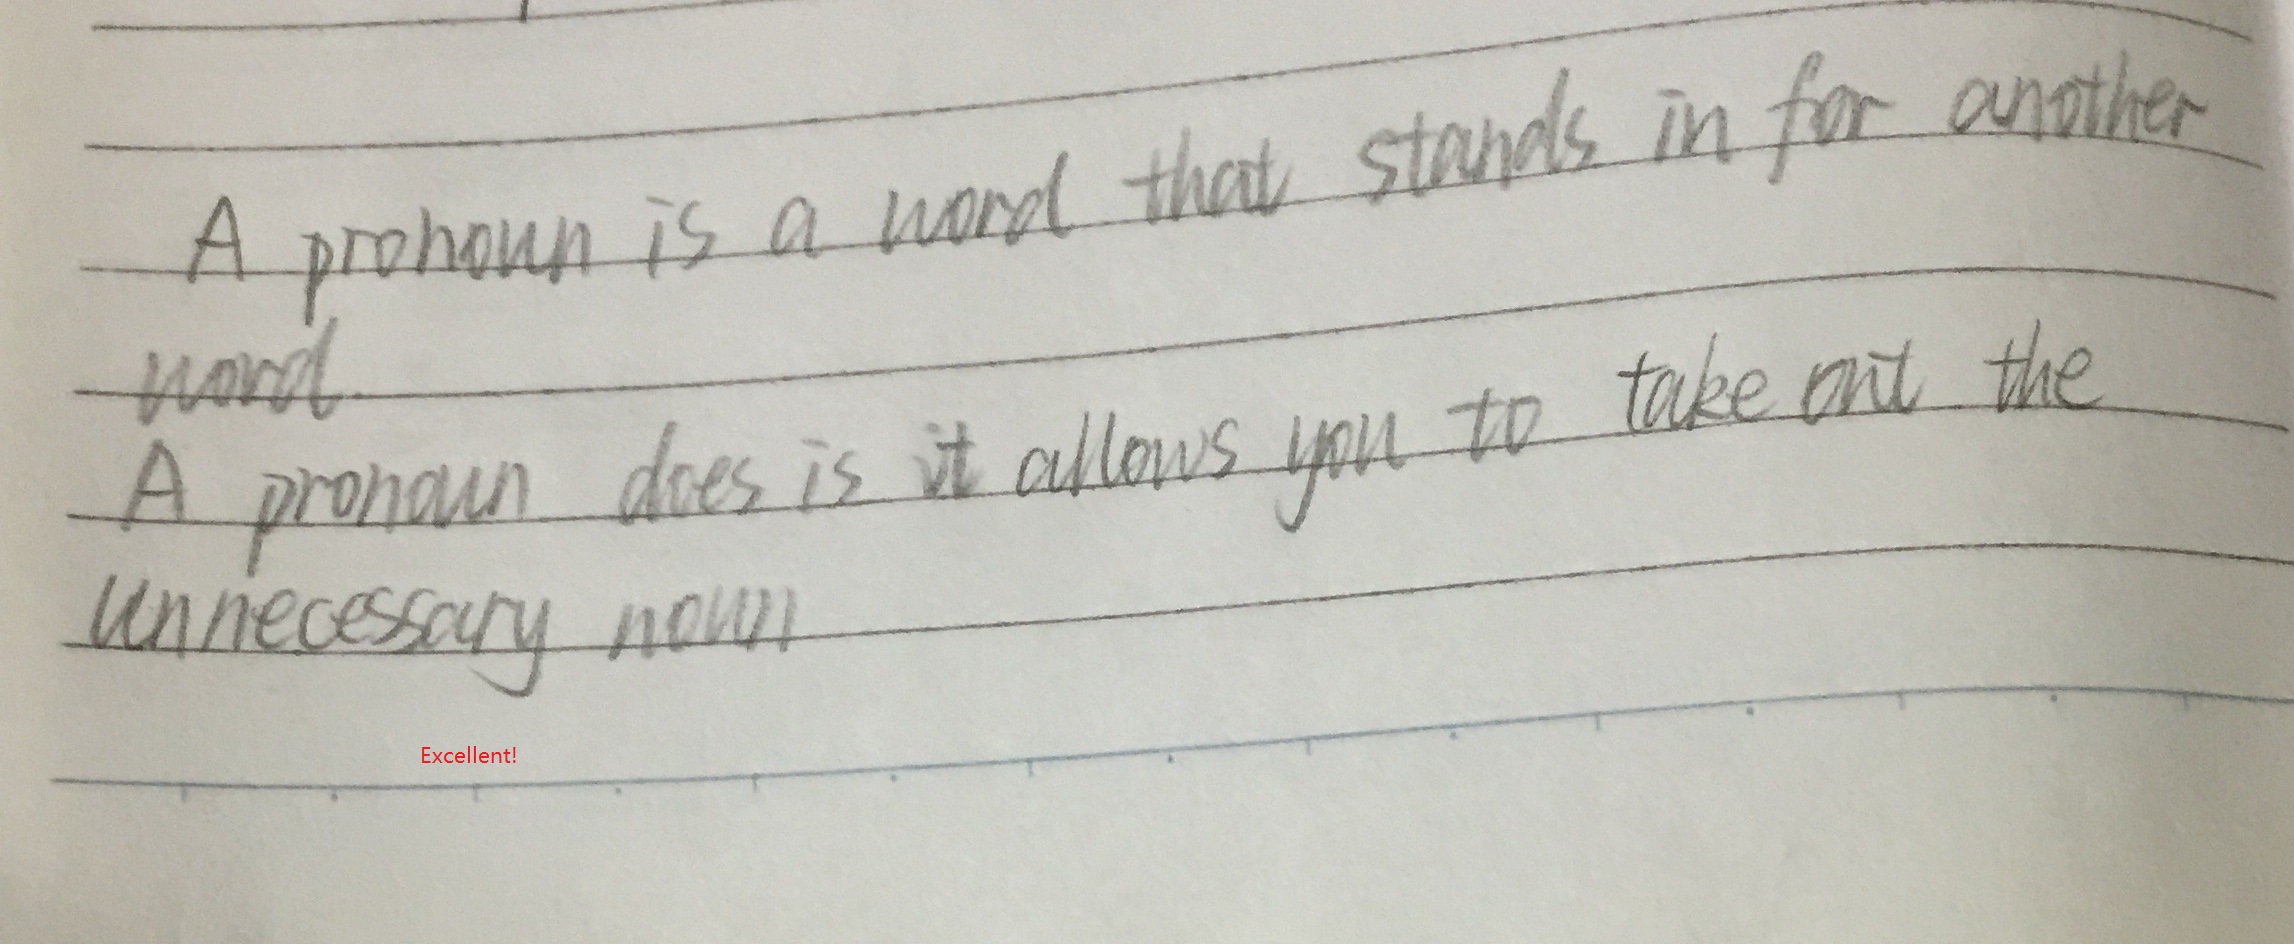 A pronoun is a word that stands in for another
word.
A pronoun does is it allows you to take out the
unnecessary noun
Excellent!